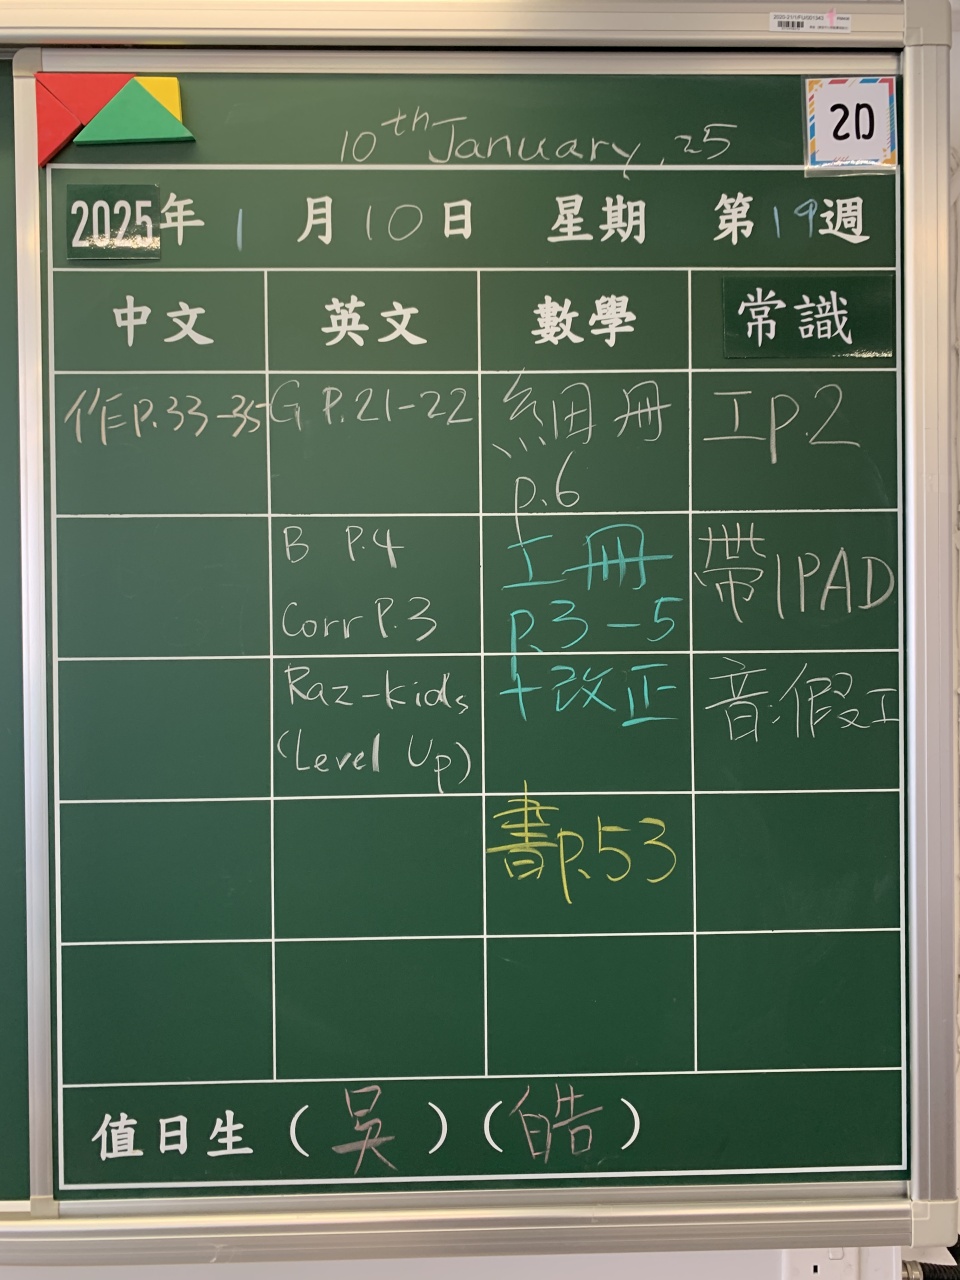 2020-21/1FU/001343
10th January, 25
2D
2025年 1 月 10 日 星期 第 19 週
中文 英文 數學 常識
作P.33-35 G P.21-22 細冊 工P.2
p.6
B P.4 工冊 帶IPAD
Corr P.3 P.3-5
Raz-kids +改正 音:假工
(Level Up)
書P.53
值日生 (吴) (皓)